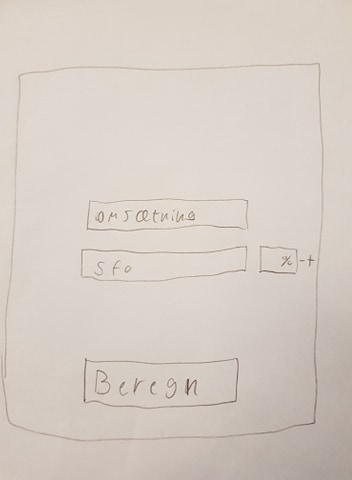 omsætning
sfo % -+
Beregn